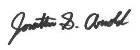 Jonathan D. Arnold